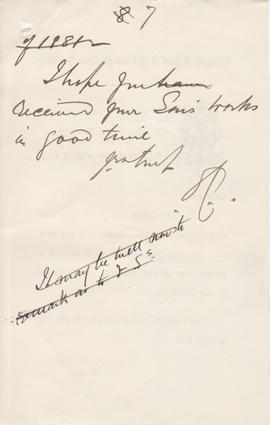 8 7
of 1881
I hope you have
received your Son's works
in good time
Yrs truly
It may be well now to
remark as to